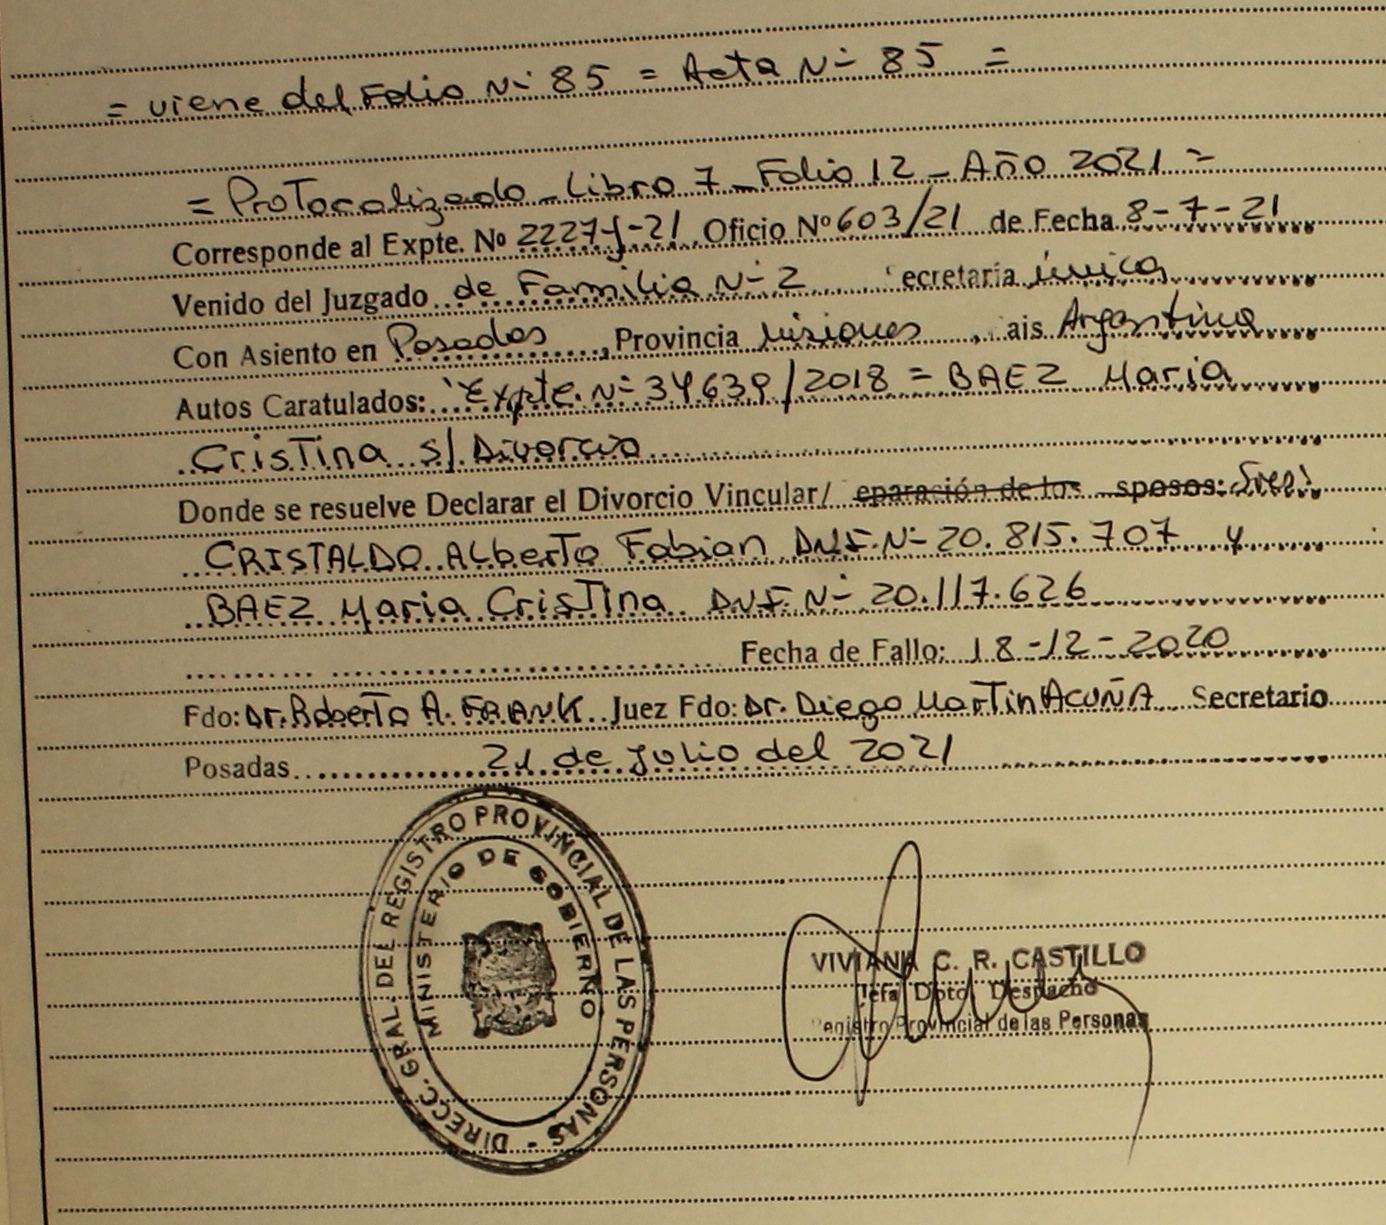 = viene del Folio Nº 85 = Acta Nº 85 =
= Protocalizado - Libro 7 - Folio 12 - Año 2021 =
Corresponde al Expte. Nº 2227-J-21 Oficio Nº 603/21 de Fecha 8-7-21
Venido del Juzgado de Familia Nº 2 ecretaría única
Con Asiento en Posadas, Provincia Misiones, ais Argentina
Autos Caratulados: "Expte. Nº 34639/2018 = BAEZ Maria
Cristina s/ Divorcio
Donde se resuelve Declarar el Divorcio Vincular/ eparación de los sposos:
CRISTALDO Alberto Fabian D.N.I. Nº 20.815.707 y
BAEZ Maria Cristina D.N.I. Nº 20.117.626
Fecha de Fallo: 18-12-2020
Fdo: Dr. Roberto A. FRANK Juez Fdo: Dr. Diego Martin ACUÑA Secretario
Posadas 21 de Julio del 2021
DIRECC. GRAL. DEL REGISTRO PROVINCIAL DE LAS PERSONAS -
MINISTERIO DE GOBIERNO
VIVIANA C. R. CASTILLO
Jefa Dpto. Despacho
Registro Provincial de las Personas